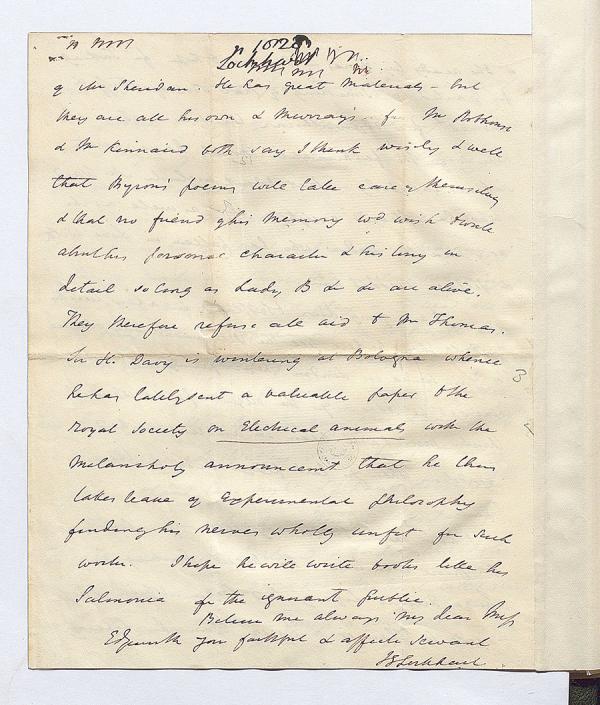 1828
Lockhart
of Mr Sheridan. He has great Materials - but
they are all his own & Murray's for Mr Hobhouse
& Mr Kinnaird both say I think wisely & well
that Byron's poems will take care of themselves
& that no friend of his Memory wd wish to write
about his personal character & history in
detail so long as Lady B &c &c are alive.
They therefore refuse all aid to Mr Thomas.
Sir H. Davy is wintering at Bologna whence
he has lately sent a valuable paper to the
Royal Society on Electrical animals with the
Melancholy announcement that he thus
takes leave of Experimental philosophy
finding his nerves wholly unfit for such
work. I hope he will write books like his
Salmonia for the ignorant public.
Believe me always my dear Miss
Edgeworth your faithful & affecte servant
JG Lockhart
3